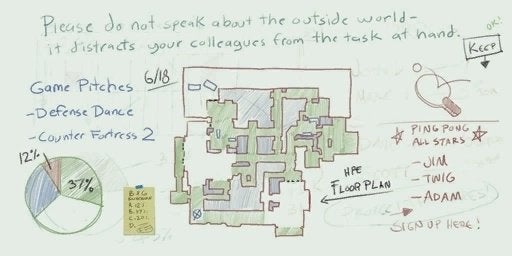 Please do not speak about the outside world-
it distracts your colleagues from the task at hand.
OK!
KEEP
Game Pitches 6/18
-Defense Dance
-Counter Fortress 2
12%
37%
HPE
FLOOR PLAN
PING PONG
ALL STARS
- JIM
- TWIG
- ADAM
SIGN UP HERE!